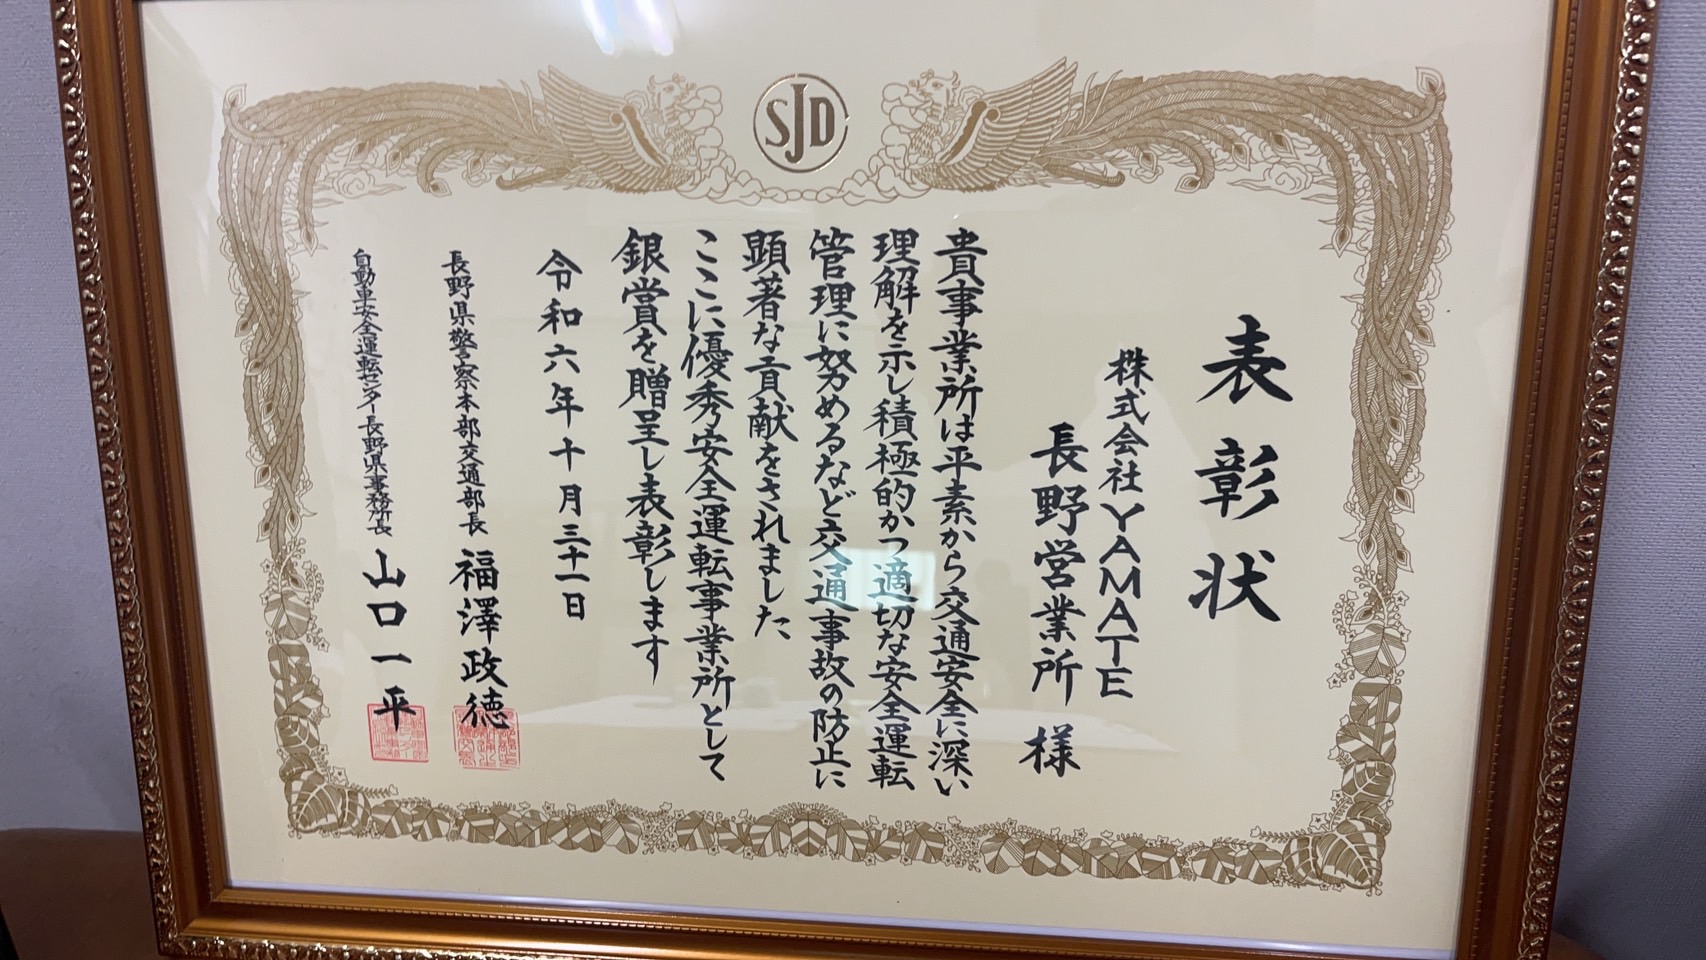 SJD
表彰状
株式会社YAMATE
長野営業所 様
貴事業所は平素から交通安全に深い
理解を示し積極的かつ適切な安全運転
管理に努めるなど交通事故の防止に
顕著な貢献をされました
ここに優秀安全運転事業所として
銀賞を贈呈し表彰します
令和六年十月三十一日
長野県警察本部交通部長 福澤政徳
自動車安全運転センター長野県事務所長 山口一平